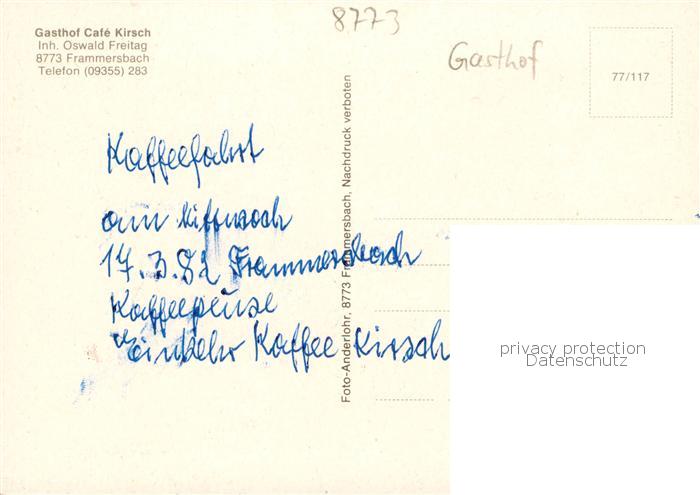 8773
Gasthof Café Kirsch
Inh. Oswald Freitag
8773 Frammersbach
Telefon (09355) 283
Gasthof
77/117
Kaffeefahrt
am Mittwoch
17.3.82 Frammersbach
Kaffeepause
Einkehr Kaffee Kirsch
Foto-Anderlohr, 8773 Frammersbach, Nachdruck verboten
privacy protection
Datenschutz